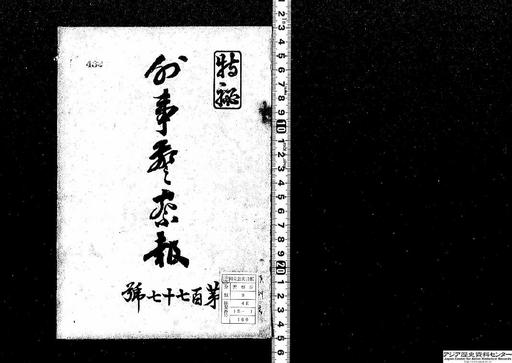 特秘
外事警察報
第百七十七號
432
アジア歴史資料センター
Japan Center for Asian Historical Records